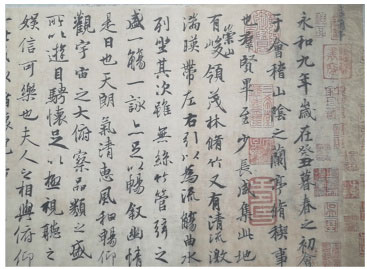 永和九年歲在癸丑暮春之初會
于會稽山陰之蘭亭脩稧事
也羣賢畢至少長咸集此地
有崇山峻領茂林脩竹又有清流激
湍暎帶左右引以為流觴曲水
列坐其次雖無絲竹管弦之
盛一觴一詠亦足以暢叙幽情
是日也天朗氣清惠風和暢仰
觀宇宙之大俯察品類之盛
所以遊目騁懷足以極視聽之
娛信可樂也夫人之相與俯仰